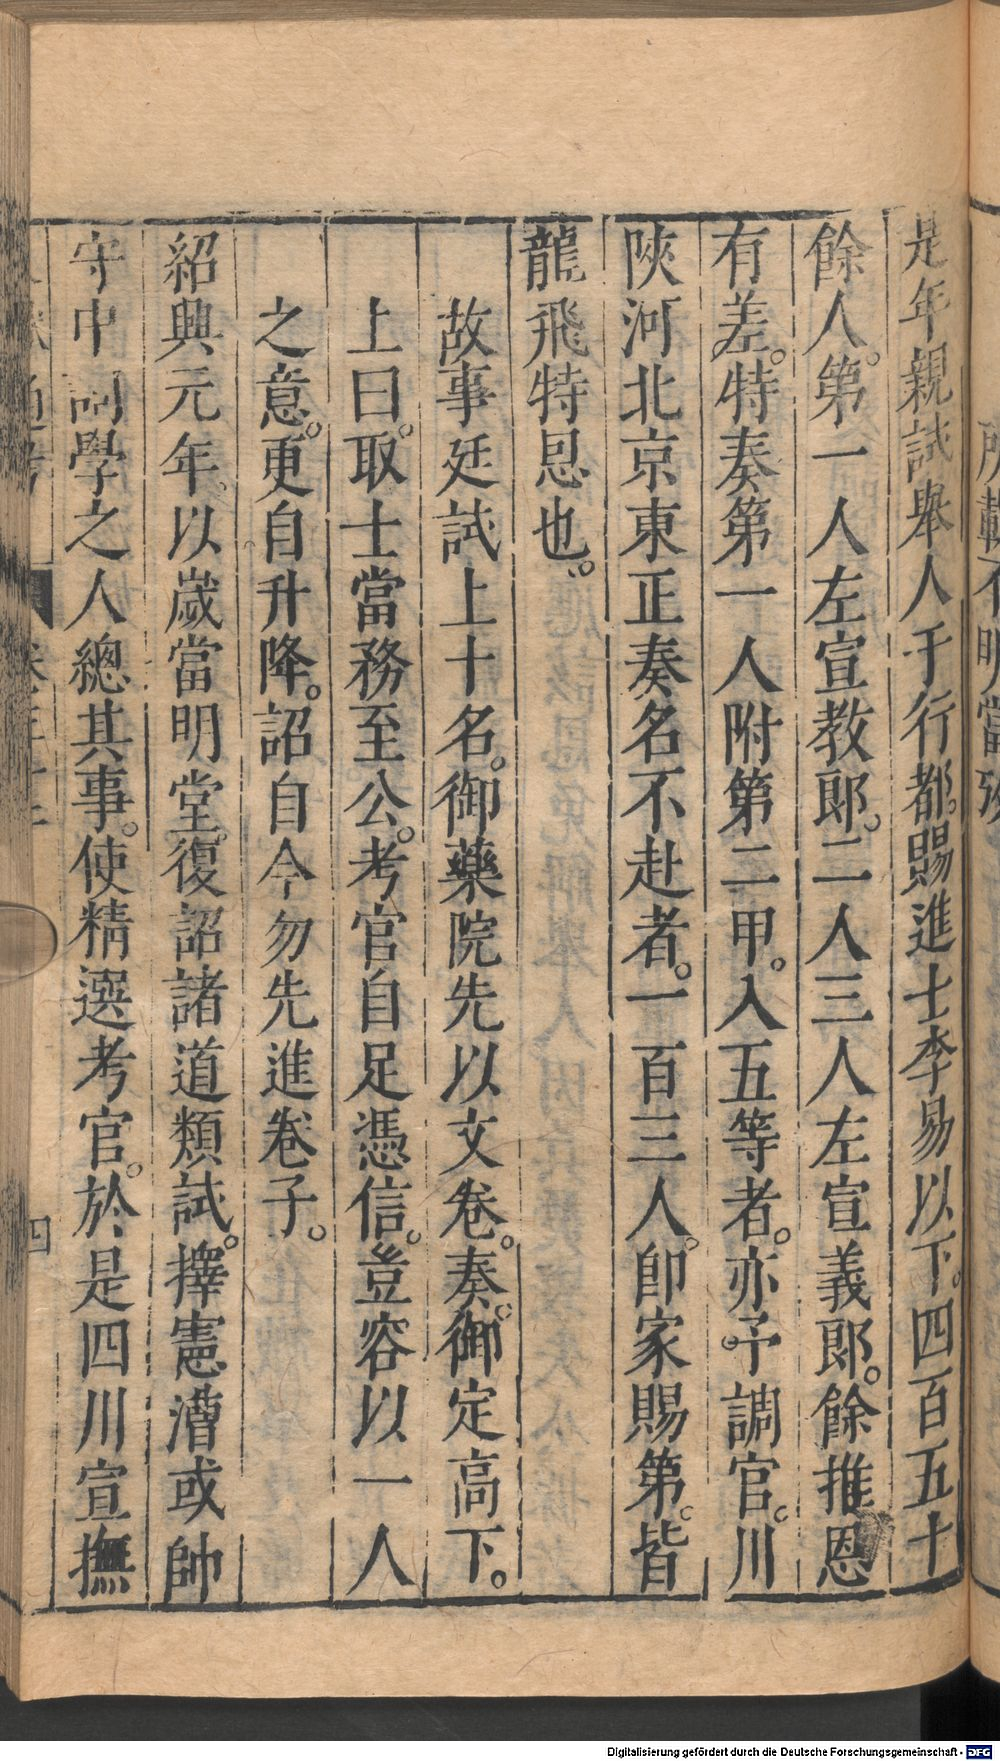 是年親試舉人于行都。賜進士李易以下。四百五十
餘人。第一人左宣教郎。二人三人左宣義郎。餘推恩
有差。特奏第一人附第二甲。入五等者。亦予調官。川
陝河北京東正奏名不赴者。一百三人。卽家賜第。皆
龍飛特恩也。
故事廷試上十名。御藥院先以文卷。奏。御定高下。
上曰。取士當務至公。考官自足憑信。豈容以一人
之意。更自升降。詔自今勿先進卷子。
紹興元年。以歲當明堂。復詔諸道類試。擇憲漕或帥
守中詞學之人總其事。使精選考官。於是四川宣撫
四
Digitalisierung gefördert durch die Deutsche Forschungsgemeinschaft - DFG